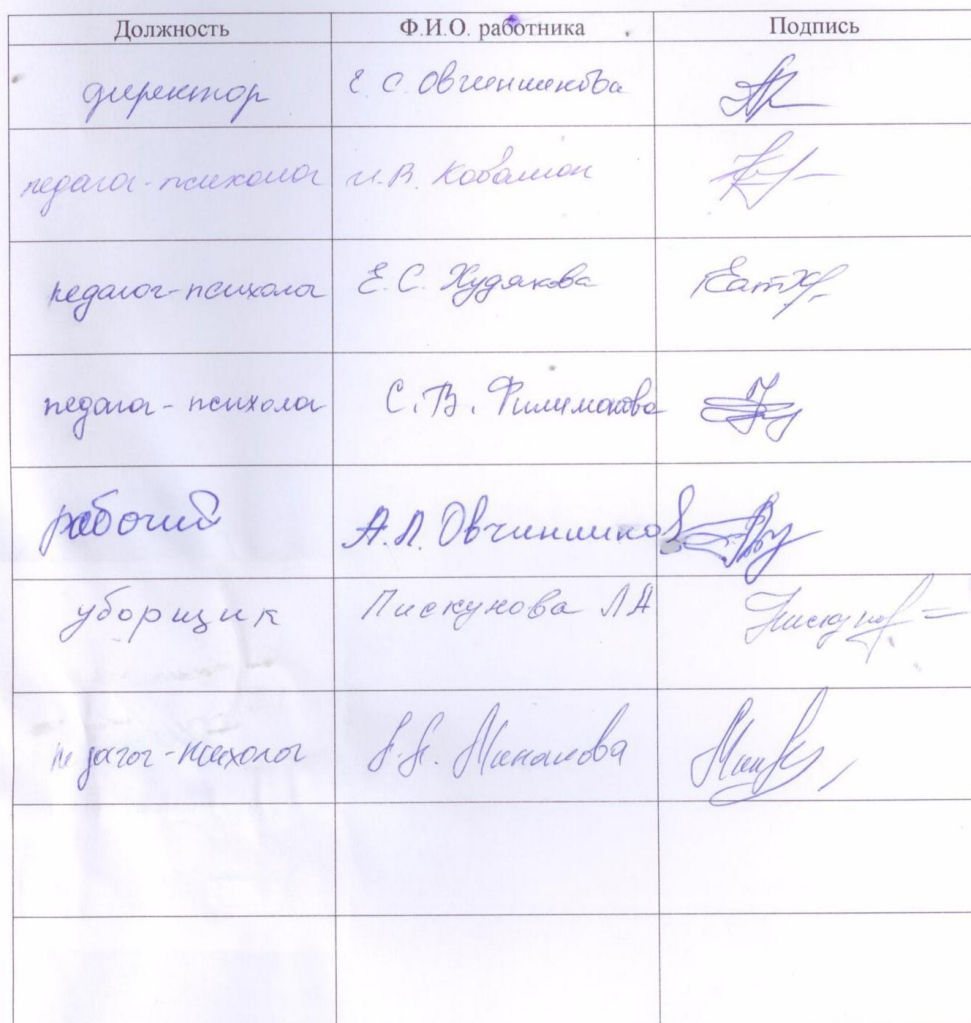 Должность Ф.И.О. работника Подпись
директор Е. С. Овчинникова
педагог-психолог И.В. Ковалюк
педагог-психолог Е.С. Худякова
педагог-психолог С.В. Филимонова
рабочий А.Л. Овчинников
уборщик Пискунова Л А
педагог-психолог Минакова